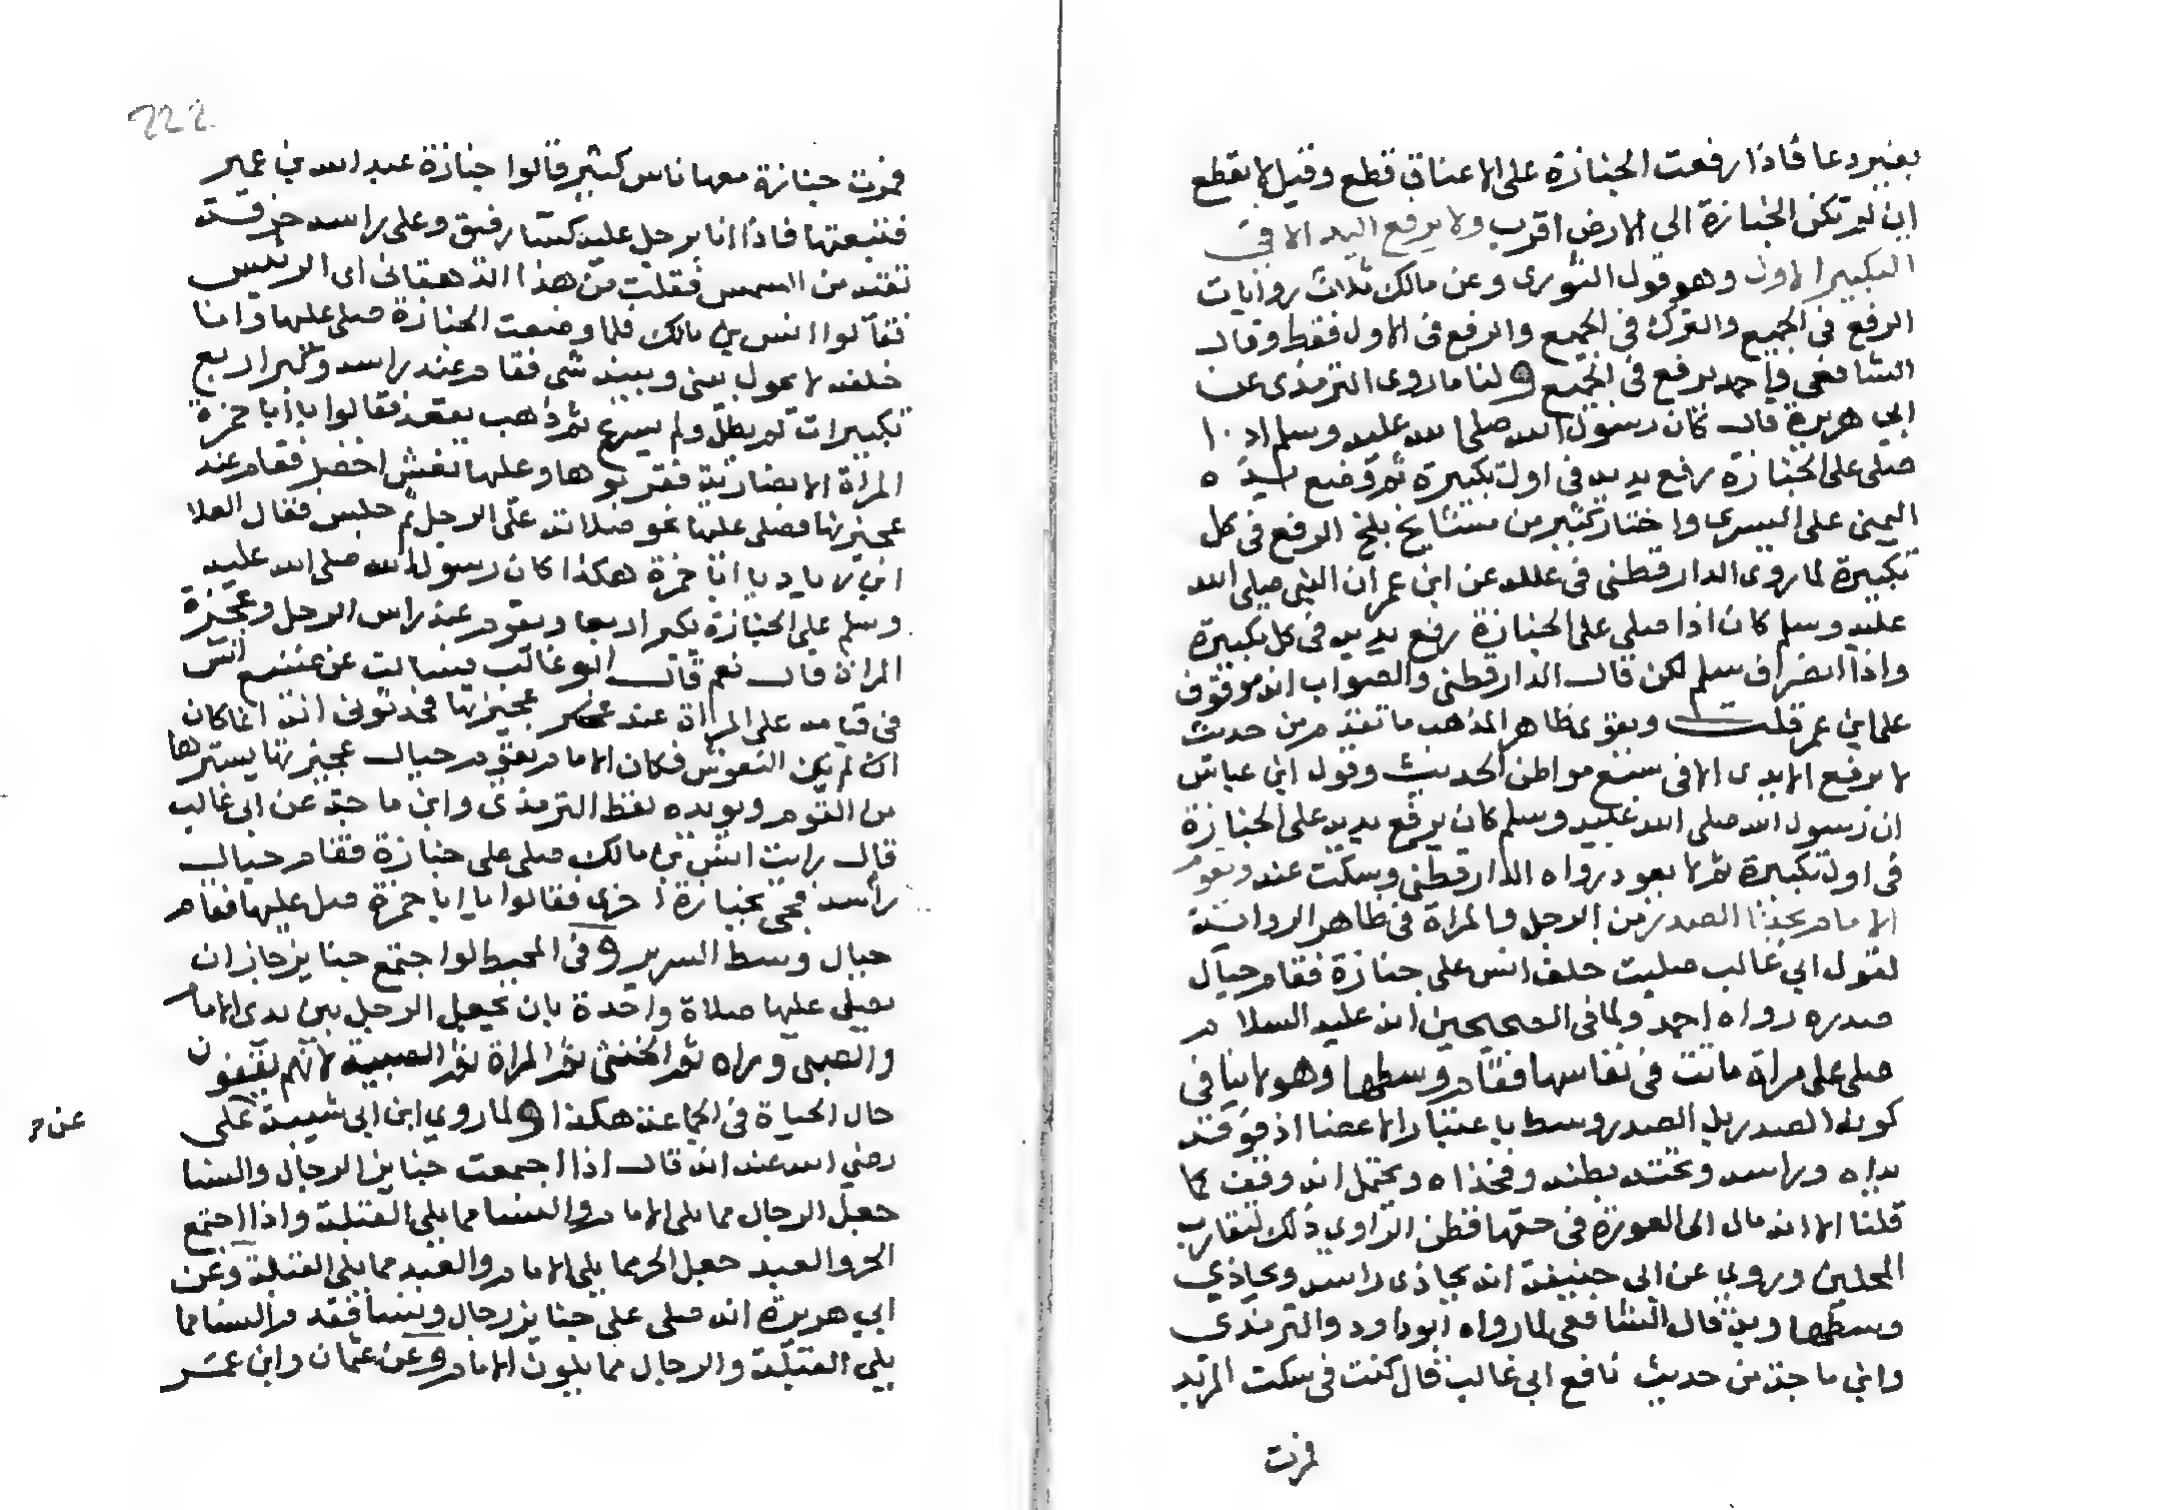 بغير دعا فاذا رفعت الجنازة على الاعناق قطع وقيل لا يقطع
ان لم تكن الجنازة الى الارض اقرب ولا يرفع اليد الا في
التكبير الاول وهو قول الثوري وعن مالك ثلاث روايات
الرفع في الجميع والترك في الجميع والرفع في الاول فقط وقال
الشافعي واحمد يرفع في الجميع ولنا ما روى الترمذي عن
ابي هريرة قال كان رسول الله صلى الله عليه وسلم اذا
صلى على الجنازة رفع يديه في اول تكبيرة ثم وضع يده
اليمنى على اليسرى واختار كثير من مشايخ بلخ الرفع في كل
تكبيرة لما روى الدارقطني في علله عن ابن عمر ان النبي صلى الله
عليه وسلم كان اذا صلى على الجنازة رفع يديه في كل تكبيرة
واذا انصرف سلم لكن قال الدارقطني والصواب انه موقوف
على ابن عمر قلت ويقوي ظاهر المذهب ما تقدم من حديث
لا ترفع الايدي الا في سبع مواطن الحديث وقول ابن عباس
ان رسول الله صلى الله عليه وسلم كان يرفع يديه على الجنازة
في اول تكبيرة ثم لا يعود رواه الدارقطني وسكت عنه ويقوم
الامام بحذا الصدر من الرجل والمراة في ظاهر الرواية
لقول ابي غالب صليت خلف انس على جنازة فقام حيال
صدره رواه احمد ولما في الصحيحين انه عليه السلام
صلى على مراة ماتت في نفاسها فقام وسطها وهو لا ينافي
كونه الصدر بل الصدر وسط باعتبار الاعضا اذ فوقه
يداه وراسه وتحته بطنه وفخذاه ويحتمل انه وقف كما
قلنا الا انه مال الى العورة في حقها فظن الراوي ذلك لتقارب
المحلين وروي عن ابي حنيفة انه يحاذي راسه ويحاذي
وسطها وبه قال الشافعي لما رواه ابوداود والترمذي
وابن ماجة من حديث نافع ابي غالب قال كنت في سكت المربد
فمرت
222
فمرت جنازة معها ناس كثير قالوا جنازة عبد الله بن عمير
فتبعتها فاذا انا برجل عليه كسا رقيق وعلى راسه خرقة
تقيه من الشمس فقلت من هذا الدهقان اي الرئيس
فقالوا انس بن مالك فلما وضعت الجنازة صلى عليها وانا
خلفه لا يحول بيني وبينه شي فقام عند راسه وكبر اربع
تكبيرات لم يطل ولم يسرع ثم ذهب يقعد فقالوا يا ابا حمزة
المراة الانصارية فقربوها وعليها نعش اخضر فقام عند
عجيزتها فصلى عليها نحو صلاته على الرجل ثم جلس فقال العلا
ابن زياد يا ابا حمزة هكذا كان رسول الله صلى الله عليه
وسلم على الجنازة يكبر اربعا ويقوم عند راس الرجل وعجيزة
المراة قال نعم قال ابو غالب فسالت عن صنيع انس
في قيامه على المراة عند عجيزتها فحدثوني انه انما كان
لانه لم يكن النعوش فكان الامام يقوم حيال عجيزتها يسترها
من القوم ويويده لفظ الترمذي وابن ماجة عن ابي غالب
قال رايت انس بن مالك صلى على جنازة فقام حيال
راسه فجي بجنازة اخرى فقالوا يا ابا حمزة صل عليها فقام
حيال وسط السرير وفي المحيط لو اجتمع جنايز جاز ان
يصلى عليها صلاة واحدة بان يجعل الرجل بين يدي الامام
والصبي وراه ثم الخنثى ثم المراة ثم الصبية لانهم يقفون
حال الحياة في الجماعة هكذا ولما روي ابن ابي شيبة على
عن
رضي الله عنه انه قال اذا اجمعت جنايز الرجال والنسا
جعل الرجال مما يلي الامام والنسا مما يلي القبلة واذا اجتمع
الحر والعبد جعل الحر مما يلي الامام والعبد مما يلي القبلة وعن
ابي هريرة انه صلى على جنايز رجال ونسا فقدم النسا مما
يلي القبلة والرجال مما يلون الامام وعن عثمان وابن عمر